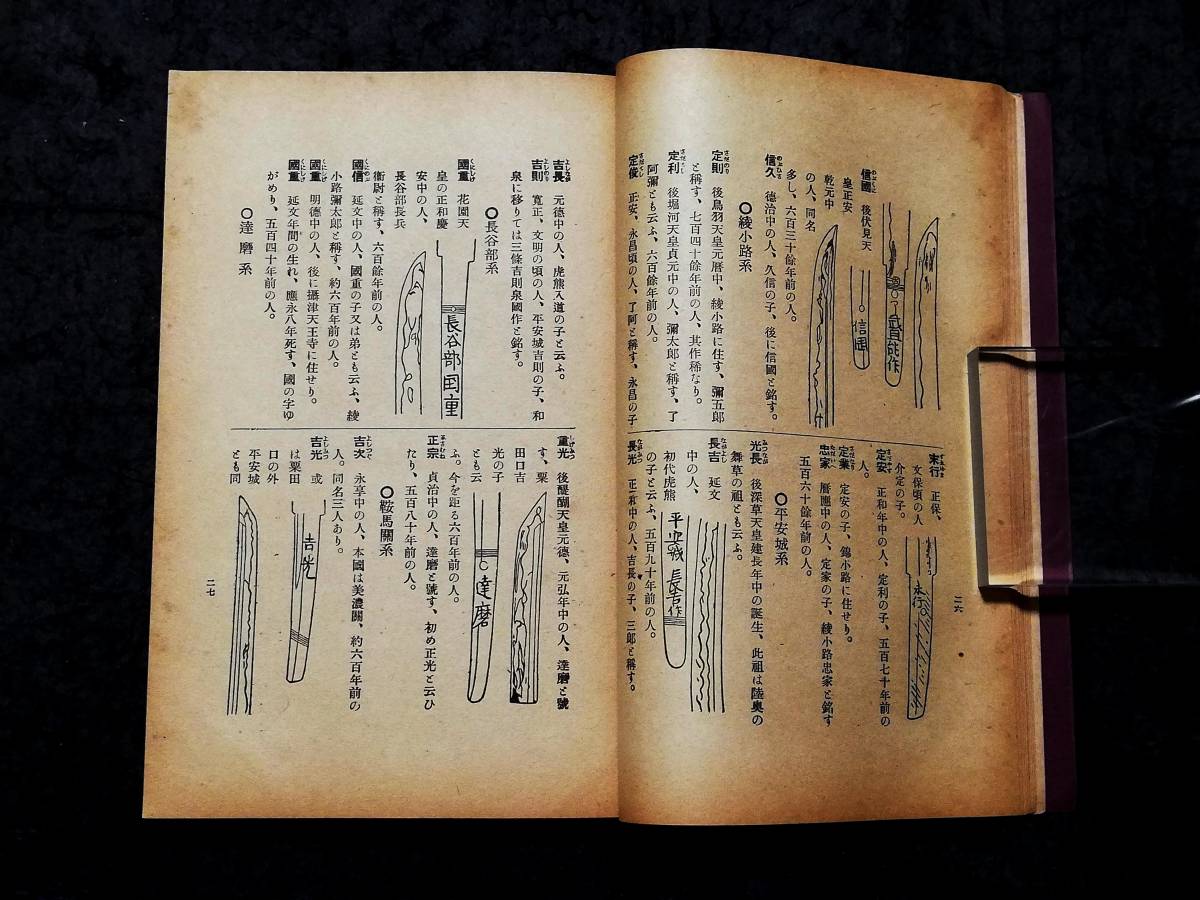 信國 後伏見天
皇正安
乾元中
の人、同名
多し、六百三十餘年前の人。
信久 德治中の人、久信の子、後に信國と銘す。
◎綾小路系
定則 後鳥羽天皇元曆中、綾小路に住す、彌五郎
と稱す、七百四十餘年前の人、其作稀なり。
定利 後堀河天皇貞元中の人、彌太郎と稱す、了
阿彌とも云ふ、六百餘年前の人。
定俊 正安、永昌頃の人、了阿と稱す、永昌の子
信國
末行 正保、
文保頃の人
介定の子。
定安 正和年中の人、定利の子、五百七十年前の
人。
定業 定安の子、錦小路に住せり。
忠家 曆應中の人、定家の子、綾小路忠家と銘す
五百六十餘年前の人。
◎平安城系
光長 後深草天皇建長年中の誕生、此祖は陸奥の
舞草の祖とも云ふ。
長吉 延文
中の人、
初代虎熊
の子と云ふ、五百九十年前の人。
長光 正安中の人、吉長の子、三郎と稱す。
平安城長吉作
二六
吉長 元德中の人、虎熊入道の子と云ふ。
吉則 寬正、文明の頃の人、平安城吉則の子、和
泉に移りては三條吉則泉國作と銘す。
◎長谷部系
國重 花園天
皇の正和慶
安中の人、
長谷部長兵
衞尉と稱す、六百餘年前の人。
國信 延文中の人、國重の子又は弟とも云ふ、綾
小路彌太郎と稱す、約六百年前の人。
國重 明德中の人、後に攝津天王寺に住せり。
國重 延文年間の生れ、應永八年死す、國の字ゆ
がめり、五百四十年前の人。
◎達磨系
長谷部国重
重光 後醍醐天皇元德、元弘年中の人、達磨と號
す、粟
田口吉
光の子
とも云
ふ。今を距る六百年前の人。
正宗 貞治中の人、達磨と號す、初め正光と云ひ
たり、五百八十年前の人。
◎鞍馬關系
吉次 永享中の人、本國は美濃關、約六百年前の
人。同名三人あり。
吉光 或
は粟田
口の外
平安城
とも同
達磨
吉光
二七